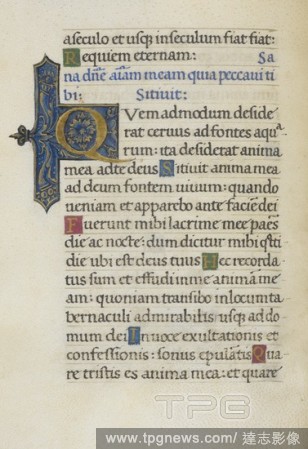 a seculo et usq; in seculum fiat fiat:
Requiem eternam: Sa
na dñe aĩam meam quia peccavi ti
bi: Sitivit:
Quem admodum deside
rat ceruus ad fontes aqua
rum: ita desiderat anima
mea ad te deus Sitiuit anima mea
ad deum fontem uiuum: quando
ueniam et apparebo ante faciẽ dei
Fuerunt mihi lacrime mee paẽs
die ac nocte: dum dicitur mihi q̃ti
die ubi est deus tuus Hec recorda
tus sum et effudi in me animã me
am: quoniam transibo in locum ta
bernaculi admirabilis usq; ad do
mum dei In uoce exultationis et
confessionis: sonus epulãtis Qua
re tristis es anima mea: et quare
TPG
www.tpgnews.com/ 達志影像